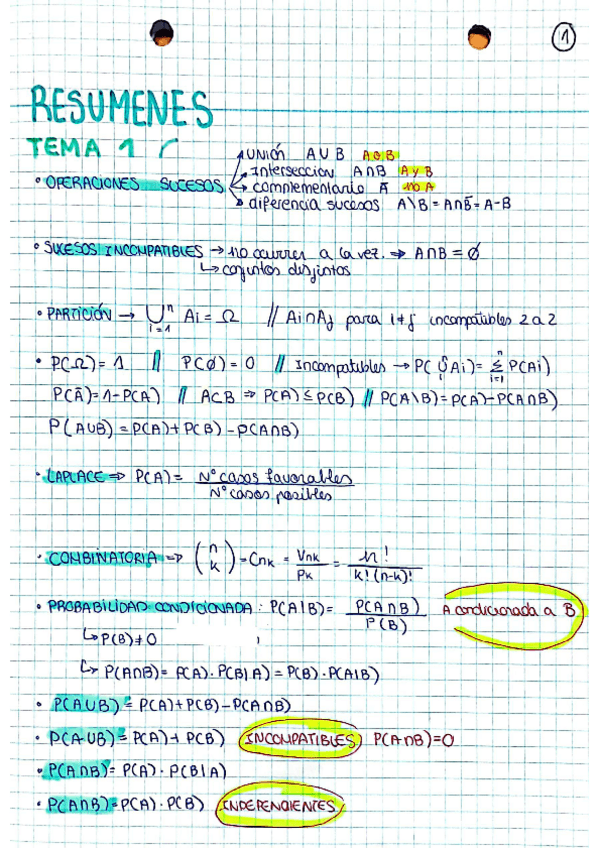 1
RESUMENES
TEMA 1
UNIÓN A∪B A o B
intersección A∩B A y B
• OPERACIONES SUCESOS → complementario Ā no A
diferencia sucesos A\B = A∩B̄ = A-B
• SUCESOS INCOMPATIBLES → no ocurren a la vez. ⇒ A∩B = ∅
↳ conjuntos disjuntos
• PARTICIÓN → ⋃ⁿᵢ₌₁ Ai = Ω // Ai∩Aj para i≠j incompatibles 2 a 2
• P(Ω) = 1 // P(∅) = 0 // Incompatibles → P(⋃ⁿᵢ₌₁ Ai) = Σⁿᵢ₌₁ P(Ai)
P(Ā) = 1-P(A) // A⊂B ⇒ P(A) ≤ P(B) // P(A\B) = P(A)-P(A∩B)
P(A∪B) = P(A)+P(B)-P(A∩B)
• LAPLACE ⇒ P(A) = Nº casos favorables / Nº casos posibles
• COMBINATORIA ⇒ (n k) = Cnk = Vnk / Pk = n! / k!(n-k)!
• PROBABILIDAD CONDICIONADA: P(A|B) = P(A∩B) / P(B) A condicionada a B
↳ P(B) ≠ 0
↳ P(A∩B) = P(A)·P(B|A) = P(B)·P(A|B)
• P(A∪B) = P(A)+P(B)-P(A∩B)
• P(A∪B) = P(A)+P(B) INCOMPATIBLES P(A∩B)=0
• P(A∩B) = P(A)·P(B|A)
• P(A∩B) = P(A)·P(B) INDEPENDIENTES